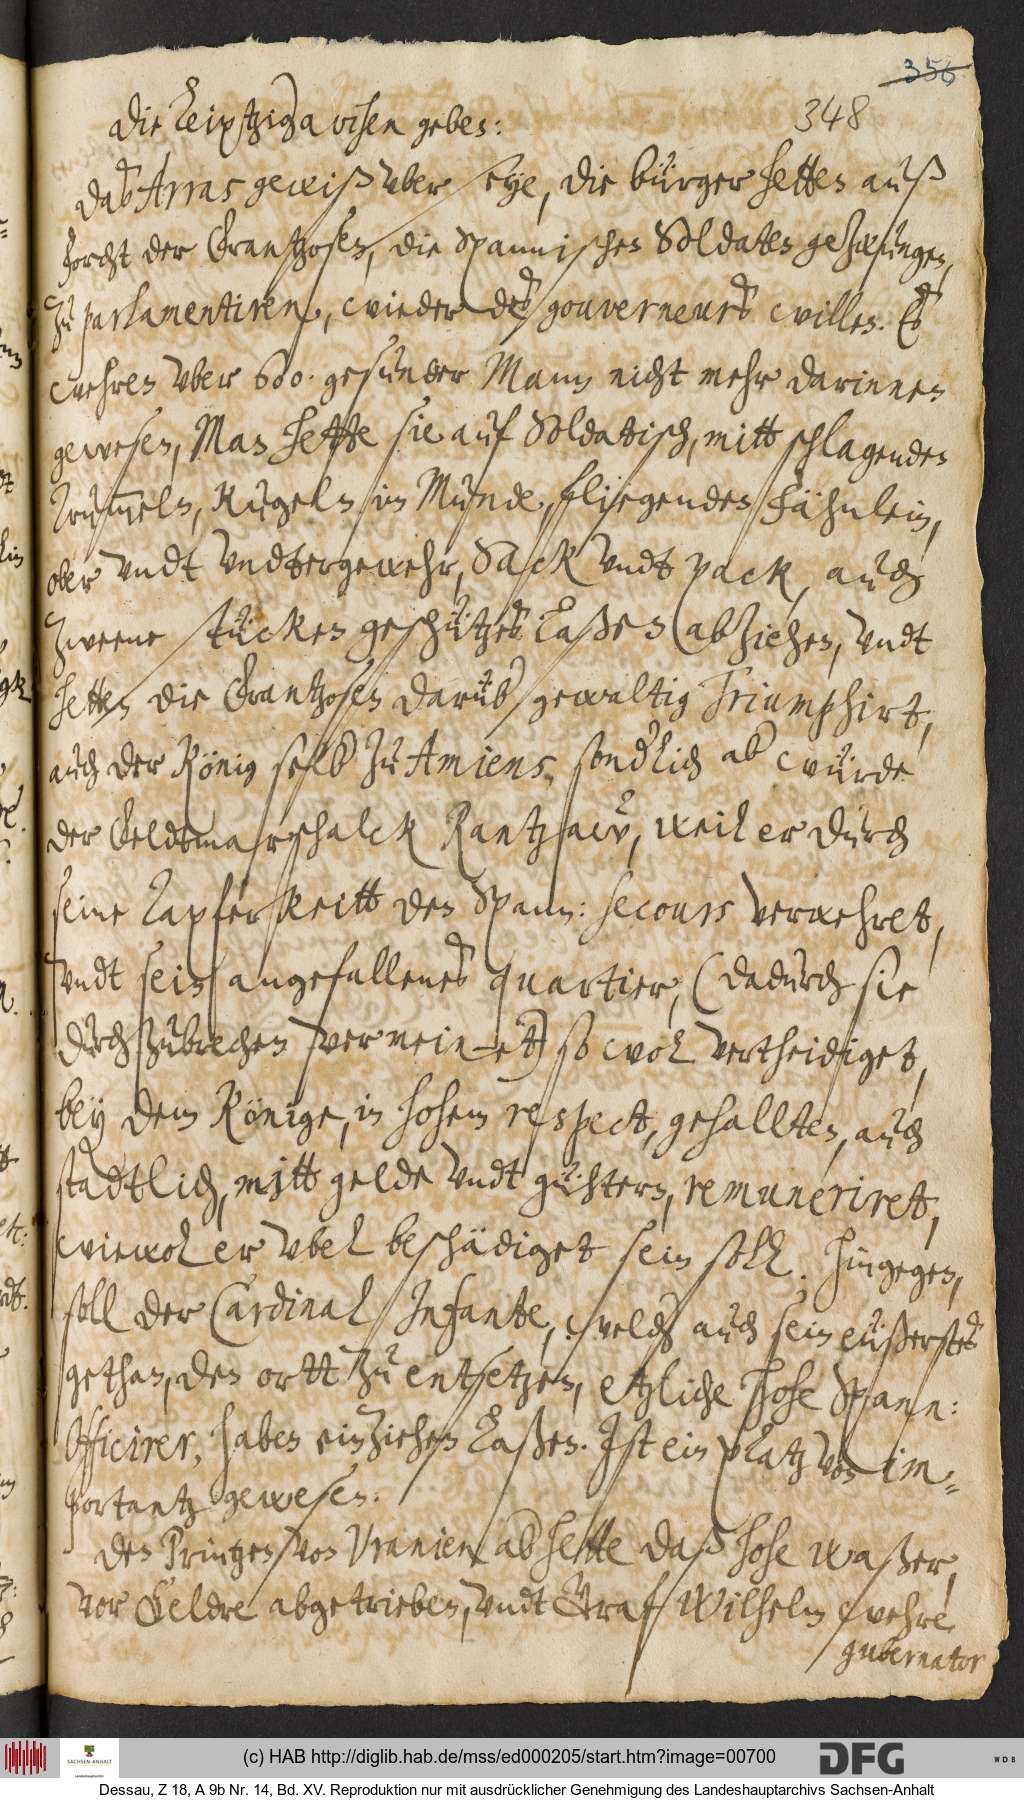 356
348
Die Leiptzig avisen geben:
daß Arras gewiß vber seye, die bürger hetten auß
forcht der Frantzosen, die Spannischen Soldaten gezwungen,
zu parlamentiren, wieder des gouverneurs willen. Es
wehren vber 600. gesunder Mann nicht mehr darinnen
gewesen, Man hette sie auf Soldatisch, mitt schlagenden
Trummeln, Kugeln im Munde, fliegenden Fähnlein,
ober vndt vndtergewehr, Sack vndt pack, auch
zweene stücken geschützes laßen abziehen, vndt
hetten die Frantzosen darüb gewaltig Triumphirt,
auch der König selb zu Amiens, sondlich ab würde
der Feldtmarschalck Rantzaw, weil er durch
seine Tapferkeitt den Spann: secours verwehret,
vndt sein angefallenes quartier, (dadurch sie
durchzubrechen vermeinet) so wol vertheidiget,
bey dem Könige, in hohem respect, gehallten, auch
stadtlich, mitt gelde vndt gühtern, remuneriret,
wiewol er vbel beschädiget sein soll. Hingegen,
soll der Cardinal Infante, welch auch sein eüßerstes
gethan, den ortt zu entsetzen, etzliche hohe Spann:
Officirer, haben einziehen laßen. Ist ein platz von im=
portantz gewesen.
Den Printzen von Vranien ab hette daß hohe waßer,
vor Geldre abgetrieben, vndt Graf Wilhelm wehre
gubernator
(c) HAB http://diglib.hab.de/mss/ed000205/start.htm?image=00700
SACHSEN-ANHALT
DFG
WDB
Dessau, Z 18, A 9b Nr. 14, Bd. XV. Reproduktion nur mit ausdrücklicher Genehmigung des Landeshauptarchivs Sachsen-Anhalt